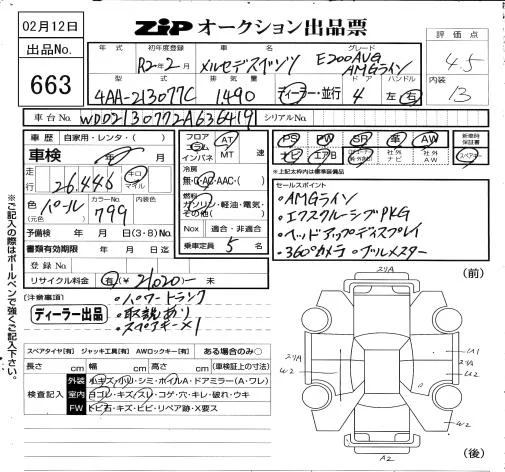 02月12日
ZIP オークション出品票
出品No.
663
年式 初年度登録 車名 グレード 評価点
R2年2月 メルセデスベンツ E200AVG AMGライン 4.5
型式 排気量 ドア ハンドル 内装
4AA-213077C 1,490 ディーラー・並行 4 左右 13
車台No. WDD2130772A636419 シリアルNo.
車歴 自家用・レンタ・( )
車検 年 月
走行 26,446 キロ マイル
色 パール (元色) カラーNo. 799
予備検 年 月 日(3・8)No.
書類有効期限 年 月 日
登録No.
リサイクル料金 有(¥ 21,020 ) 未
フロア コラム インパネ AT MT 速
冷房 無・G・AC・AAC・( )
燃料 ガソリン・軽油・電気・その他( )
Nox 適合・非適合
乗車定員 5 名
PS PW SR 革 AW 新車時保証書
ナビ エアB 社外ナビ 社外AW スペアキー
*上記太枠内は標準装備品
セールスポイント
・AMGライン
・エクスクルーシブPKG
・ヘッドアップディスプレイ
・360°カメラ ・ブルメスター
[注意事項]
ディーラー出品
・パワートランク
・取説あり
・スペアキー×1
スペアタイヤ[有] ジャッキ工具[有] AWロックキー[有] ある場合のみ○
長さ cm 幅 cm 高さ cm (車検証上の寸法)
検査記入
外装 小キズ・小U・シミ・ホイルA・ドアミラー(A・ワレ)
室内 ヨゴレ・キズ・スレ・コゲ・穴・キレ・破れ・ウキ
FW トビ石・キズ・ヒビ・リペア跡・X要ス
※ご記入の際はボールペンで強くご記入下さい。
(前)
(後)
A2
W2
U2